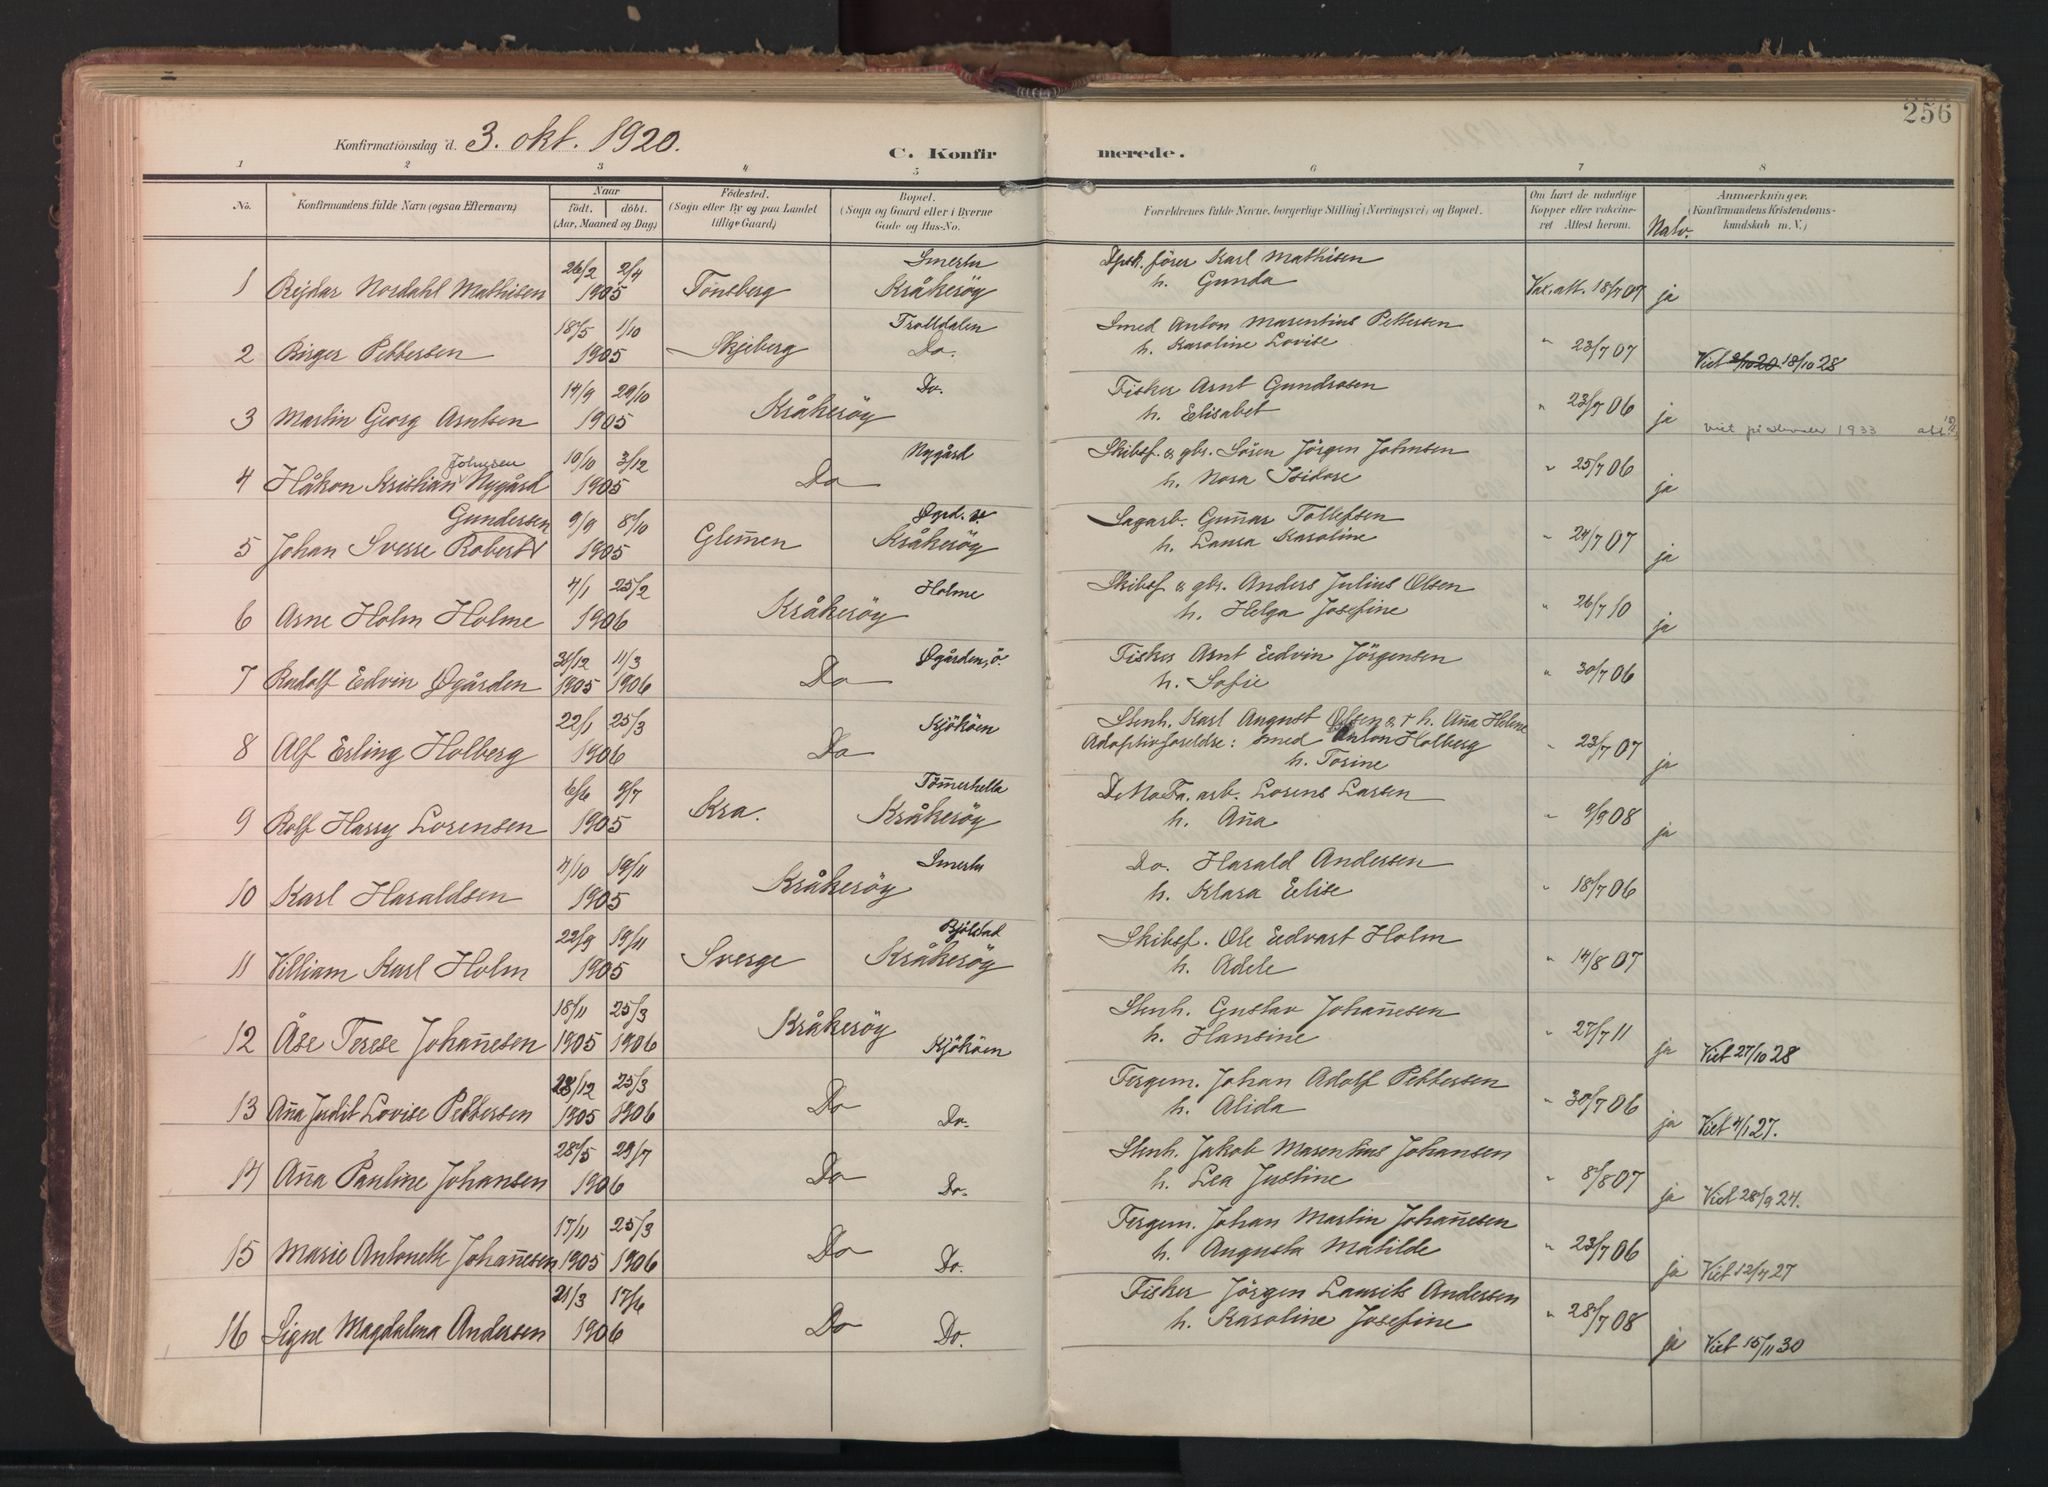 256
Konfirmationsdag d. 3. okt. 1920.
C. Konfirmerede.
1 2 3 4 5 6 7 8
No. Konfirmandens fulde Navn (ogsaa Efternavn) Naar født. døbt. (Aar, Maaned og Dag) Fødested. (Sogn eller By og paa Landet tillige Gaard) Bopæl. (Sogn og Gaard eller i Byerne Gade og Hus-No. Forældrenes fulde Navne, borgerlige Stilling (Næringsvei) og Bopæl. Om havt de naturlige Kopper eller vakcineret Attest herom. Natv. Anmærkninger. Konfirmandens Kristendomskundskab m. V.)
1 Reidar Nordahl Mathisen 26/2 1905 2/4 Tönsberg Smertu Kråkeröy förer Karl Mathisen h. Gunda Vax. att. 18/7 07 ja
2 Birger Pettersen 18/5 1905 1/10 Skjeberg Trolldalen Do. Smed Anton Marentius Pettersen h. Karoline Lovise " 23/7 07 Viet 2/10 20 18/10 28
3 Martin Georg Arntsen 14/9 1905 29/10 Kråkeröy Do. Fisker Arnt Gundrosen h. Elisabet " 23/7 06 ja Viet 1933
4 Håkon Kristian Johnsen Nygård 10/10 1905 3/12 Do Nygård Skibsf. & gbr. Sören Jörgen Johnsen h. Nora Isidore " 25/7 06 ja
5 Johan Sverre Robert Gundersen 9/9 1905 8/10 Glemmen Øgrd. v Kråkeröy Sagarb. Gunnar Tollefsen h. Laura Karoline " 24/7 07 ja
6 Arne Holm Holme 4/1 1906 25/2 Kråkeröy Holme Skibsf & gbr. Anders Julius Olsen h. Helga Josefine " 26/7 10 ja
7 Rudolf Edvin Øgården 31/12 1905 11/3 1906 Do Øgården, ö. Fisker Arnt Edvin Jörgensen h. Sofie " 30/7 06
8 Alf Erling Holberg 22/1 1906 25/3 Do Kjököen Stenh. Karl August Olsen & † h. Anna Helene Adoptivforeldre: smed Anton Holberg h. Torine " 23/7 07 ja
9 Rolf Harry Lorensen 6/6 1905 9/7 Kra. Tömmerhella Kråkeröy DeNoFa. arb. Lorens Larsen h. Anna " 9/9 08 ja
10 Karl Haraldsen 4/10 1905 19/11 Kråkeröy Smertu Do. Harald Andersen h. Klara Elise " 18/7 06
11 Villiam Karl Holm 22/9 1905 19/11 Sverge Bjölstad Kråkeröy Skibsf. Ole Edvart Holm h. Adele " 14/8 07
12 Åse Terese Johannesen 18/11 1905 25/3 1906 Kråkeröy Kjököen Stenh. Gustav Johannesen h. Hansine " 27/7 11 ja Viet 27/10 28
13 Anna Judit Lovise Pettersen 28/12 1905 25/3 1906 Do Do. Fergem. Johan Adolf Pettersen h. Alida " 30/7 06 ja Viet 4/1 27.
14 Anna Pauline Johansen 28/5 1906 29/7 Do Do. Stenh. Jakob Marentius Johansen h. Lea Justine " 8/8 07 ja Viet 28/9 24.
15 Marie Antonette Johannesen 17/11 1905 25/3 1906 Do Do. Fergem. Johan Martin Johannesen h. Augusta Matilde " 23/7 06 ja Viet 12/7 27
16 Signe Magdalena Andersen 21/3 1906 17/6 Do Do. Fisker Jörgen Laurits Andersen h. Karoline Josefine " 28/7 08 ja Viet 15/11 30